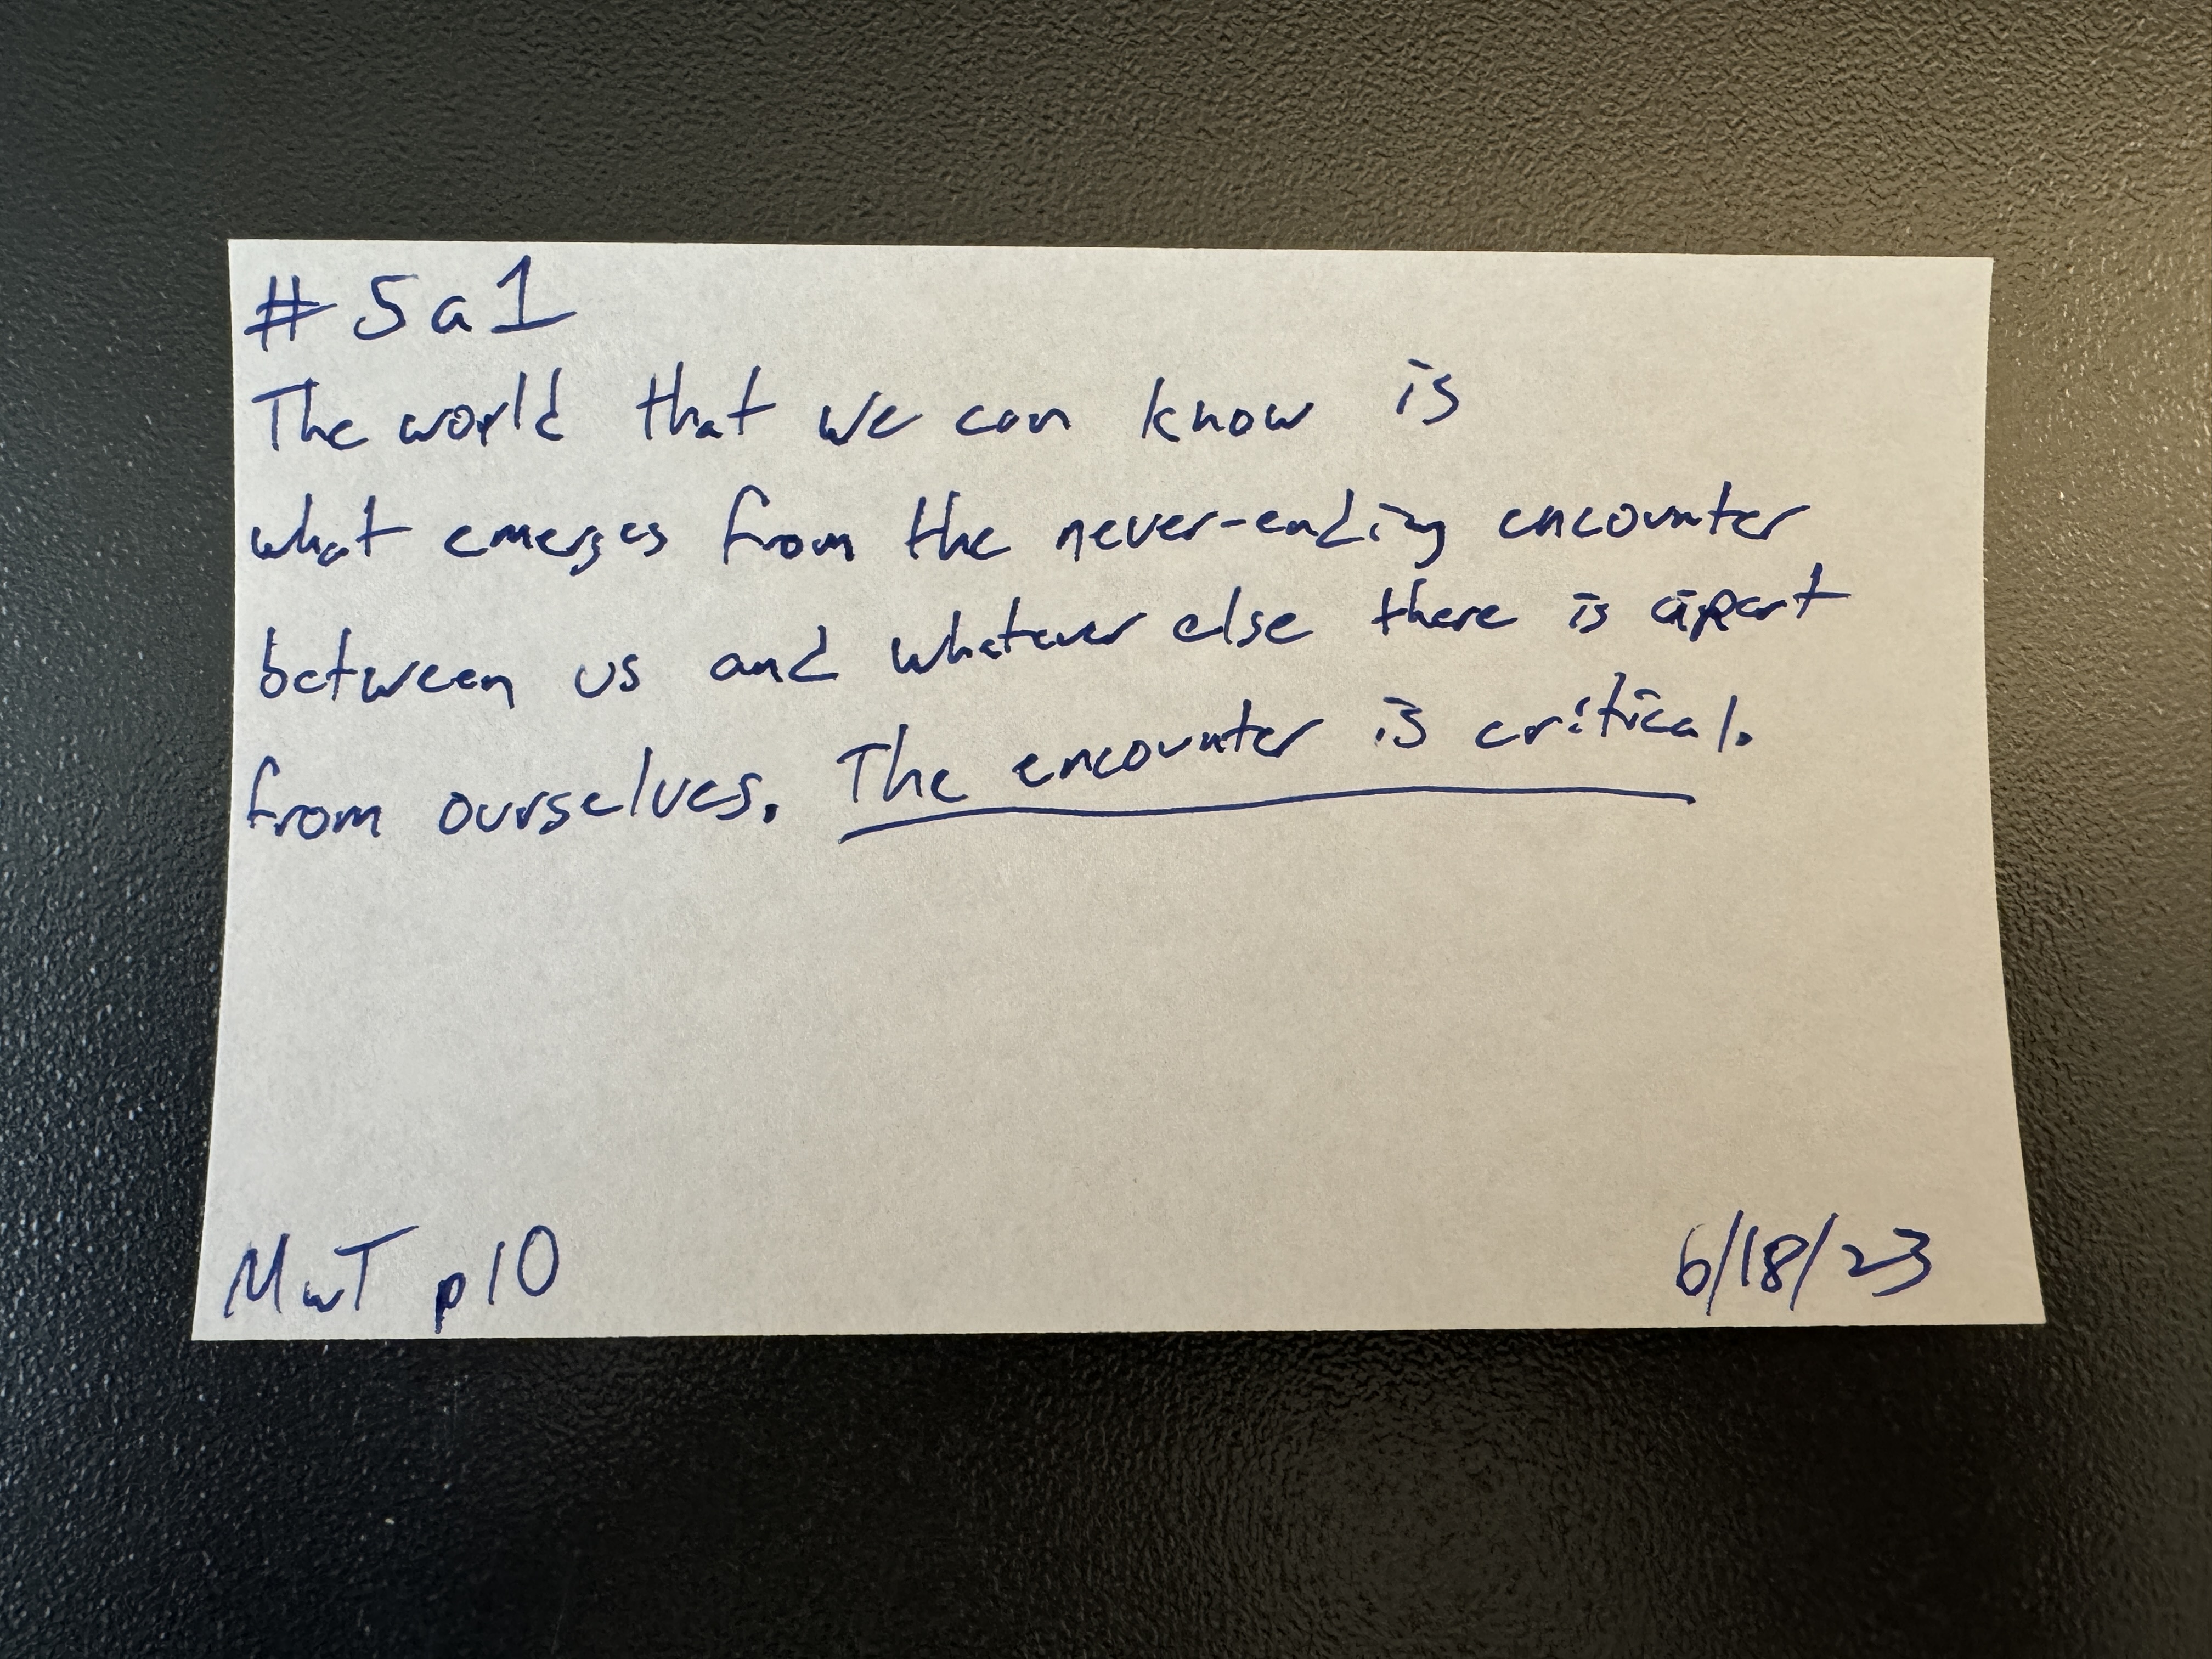 #5a1
The world that we can know is
what emerges from the never-ending encounter
between us and whatever else there is apart
from ourselves. The encounter is critical.
MwT p10
6/18/23